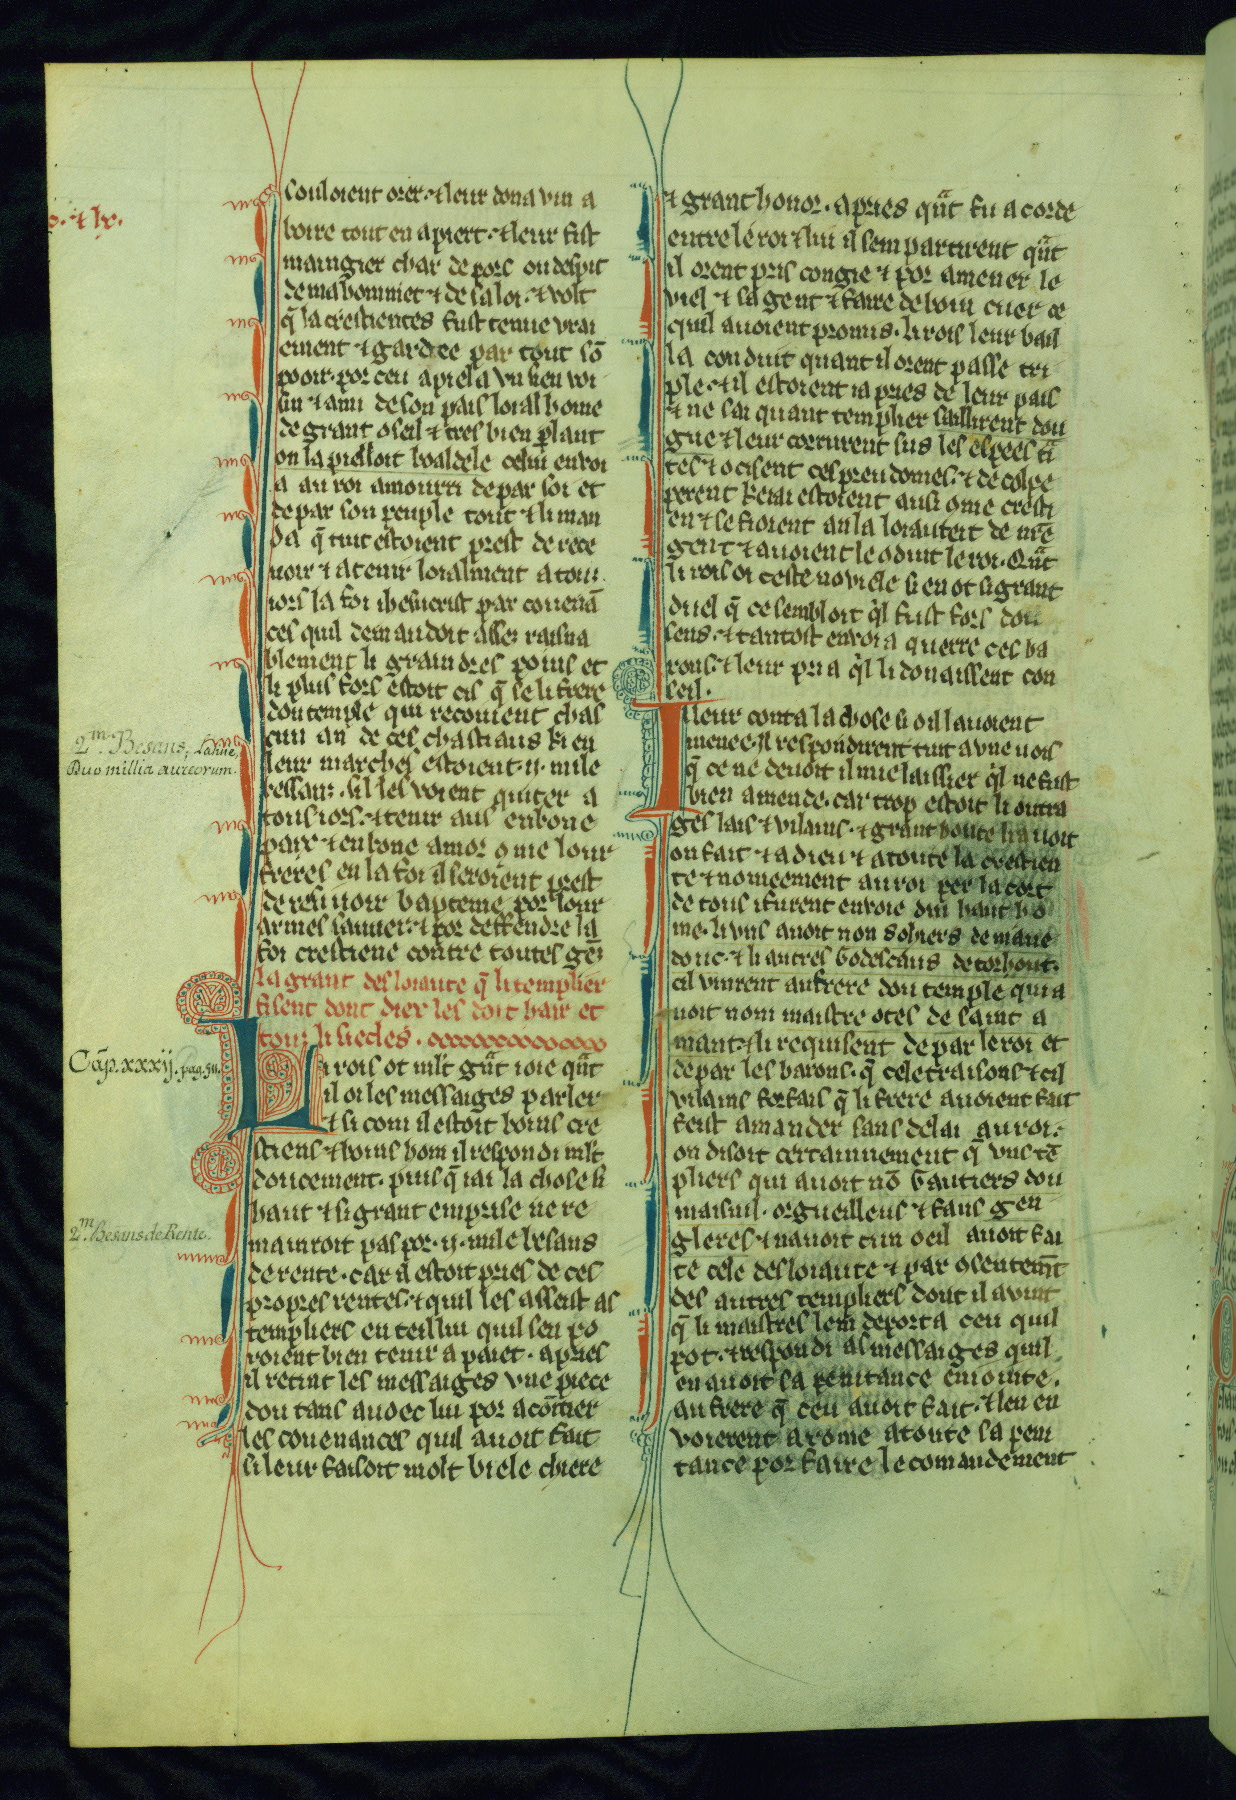 souloient orer. ⁊ leur dona vin a
boire tout en apiert. ⁊ leur fist
maingier char de porc ou despit
de mahommet ⁊ de sa loi. ⁊ volt
q̄ la crestientes fust tenue vrai
ement ⁊ gardee par tout sō
pooir. por ceu apiela vn sien voi
sin ⁊ ami de son pais loial home
de grant ɔseil ⁊ tres bien ꝑlant
on lapielloit boaldele celui envoi
a au roi amourri de par soi et
de par son peuple tout ⁊ li man
da q̄ tuit estoient prest de rece
uoir ⁊ a tenir loialment a tou
iors la foi ihesucrist par couenā
ces quil demandoit assez raisna
blement li graindres poins et
li plus fors estoit cis q̄ se li frere
dou temple qui recoiuent chas
cun an de ces chastiaus ki en
leur marches estoient .ij. mile
bessans. sil les voient quiter a
tous iors. ⁊ tenir aus en bone
paix ⁊ en bone amor ɔme lour
freres en la foi il seroient prest
de resiuoir bapteme por lour
armes sauuer. ⁊ por deffendre la
foi crestiene contre toutes gēs
la grant desloiaute q̄ li templier
fisent dont diex les doit hair et
touz li siecles.
Li rois ot mlt grāt ioie qāt
il oi les messaiges parler
⁊ si com il estoit boins cre
stiens ⁊ boins hom il respondi mlt
doucement. puis q̄ iai la chose si
haut ⁊ si grant emprise ne re
mainroit pas por .ij. mile besans
de rente. car il estoit pries de ces
propres rentes. ⁊ quil les asseist as
templiers en teil liu quil sen po
roient bien tenir a paiet. apries
il retint les messaiges vne piece
dou tans auoec lui por acōmer
les couenances quil auoit fait
si leur faisoit molt biele chiere
⁊ grant honor. apries qāt fu acorde
entre le roi ⁊ lui il sem partirent qāt
il orent pris congie ⁊ por amener le
viel ⁊ sa gent ⁊ faire de boin cuer ce
quil auoient promis. li rois leur bail
la conduit quant il orent passe tri
ple. ⁊ il estoient ia pries de leur pais
⁊ ne sai quant templier saillirent dou
gue ⁊ leur corrurent sus les espees trā
tes ⁊ ocisent ces preudomes. ⁊ decolpe
perent ki ia estoient ausi ɔme cresti
en ⁊ se fioient an la loiauteit de nr̄e
gent ⁊ auoient le ɔduit le roi. Qāt
li rois oi ceste nouiele si en ot si grant
duel q̄ ce sembloit q̄l fust fors dou
sens. ⁊ tantost enuoia querre ces ba
rons. ⁊ leur pria q̄l li donaissent con
seil.
Il leur conta la chose si ɔ il lauoient
menee. Il respondirent tuit a vne uois
q̄ ce ne deuoit il mie laissier q̄l ne fust
bien amende. car trop estoit li outra
ges lais ⁊ vilains. ⁊ grant honte li auoit
on fait ⁊ a dieu ⁊ a toute la crestien
te ⁊ nomeement au roi per la cort
de tous i furent enuoie dui haut hō
me. li vns auoit non sohiers de mame
donc. ⁊ li autres Godescaus de torhout.
cil vinrent au frere dou temple qui a
uoit nom maistre otes de saint a
mant. ⁊ li requisent de par le roi et
de par les barons. q̄ cele traisons ⁊ cil
vilains forfais q̄ li frere auoient fait
feist amander sans delai au roi.
on disoit certainnement q̄ vns tē
pliers qui auoit nō Gautiers dou
maisnil. orgueilleus ⁊ faus gen
gleres. ⁊ nauoit cun oeil auoit fai
te cele desloiaute ⁊ par ɔsentemēt
des autres templiers dont il auint
q̄ li maistres lem deporta ceu quil
pot. ⁊ respondi as messaiges quil
en auoit sa penitance eniointe.
au frere q̄ ceu auoit fait. ⁊ len en
voierent a rome atoute sa peni
tance por faire le comandement
2.m Besans, Latine,
Duo millia aureorum.
Cap. xxxij. pag.
2.m Besans de Rente.